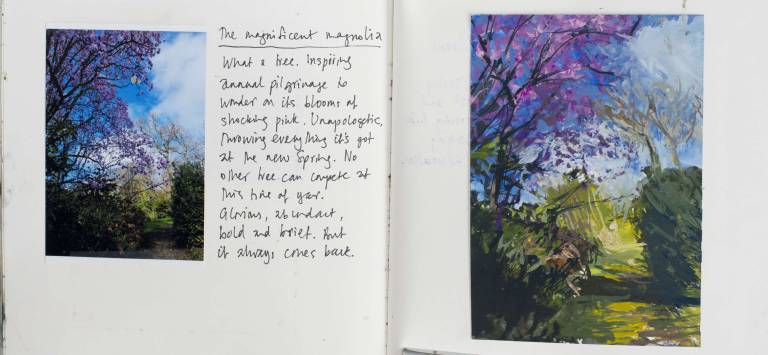 The magnificent magnolia
What a tree. Inspiring
annual pilgrimage to
wonder at its blooms of
shocking pink. Unapologetic,
throwing everything it's got
at the new spring. No
other tree can compete at
this time of year.
Glorious, abundant,
bold and brief. But
it always comes back.